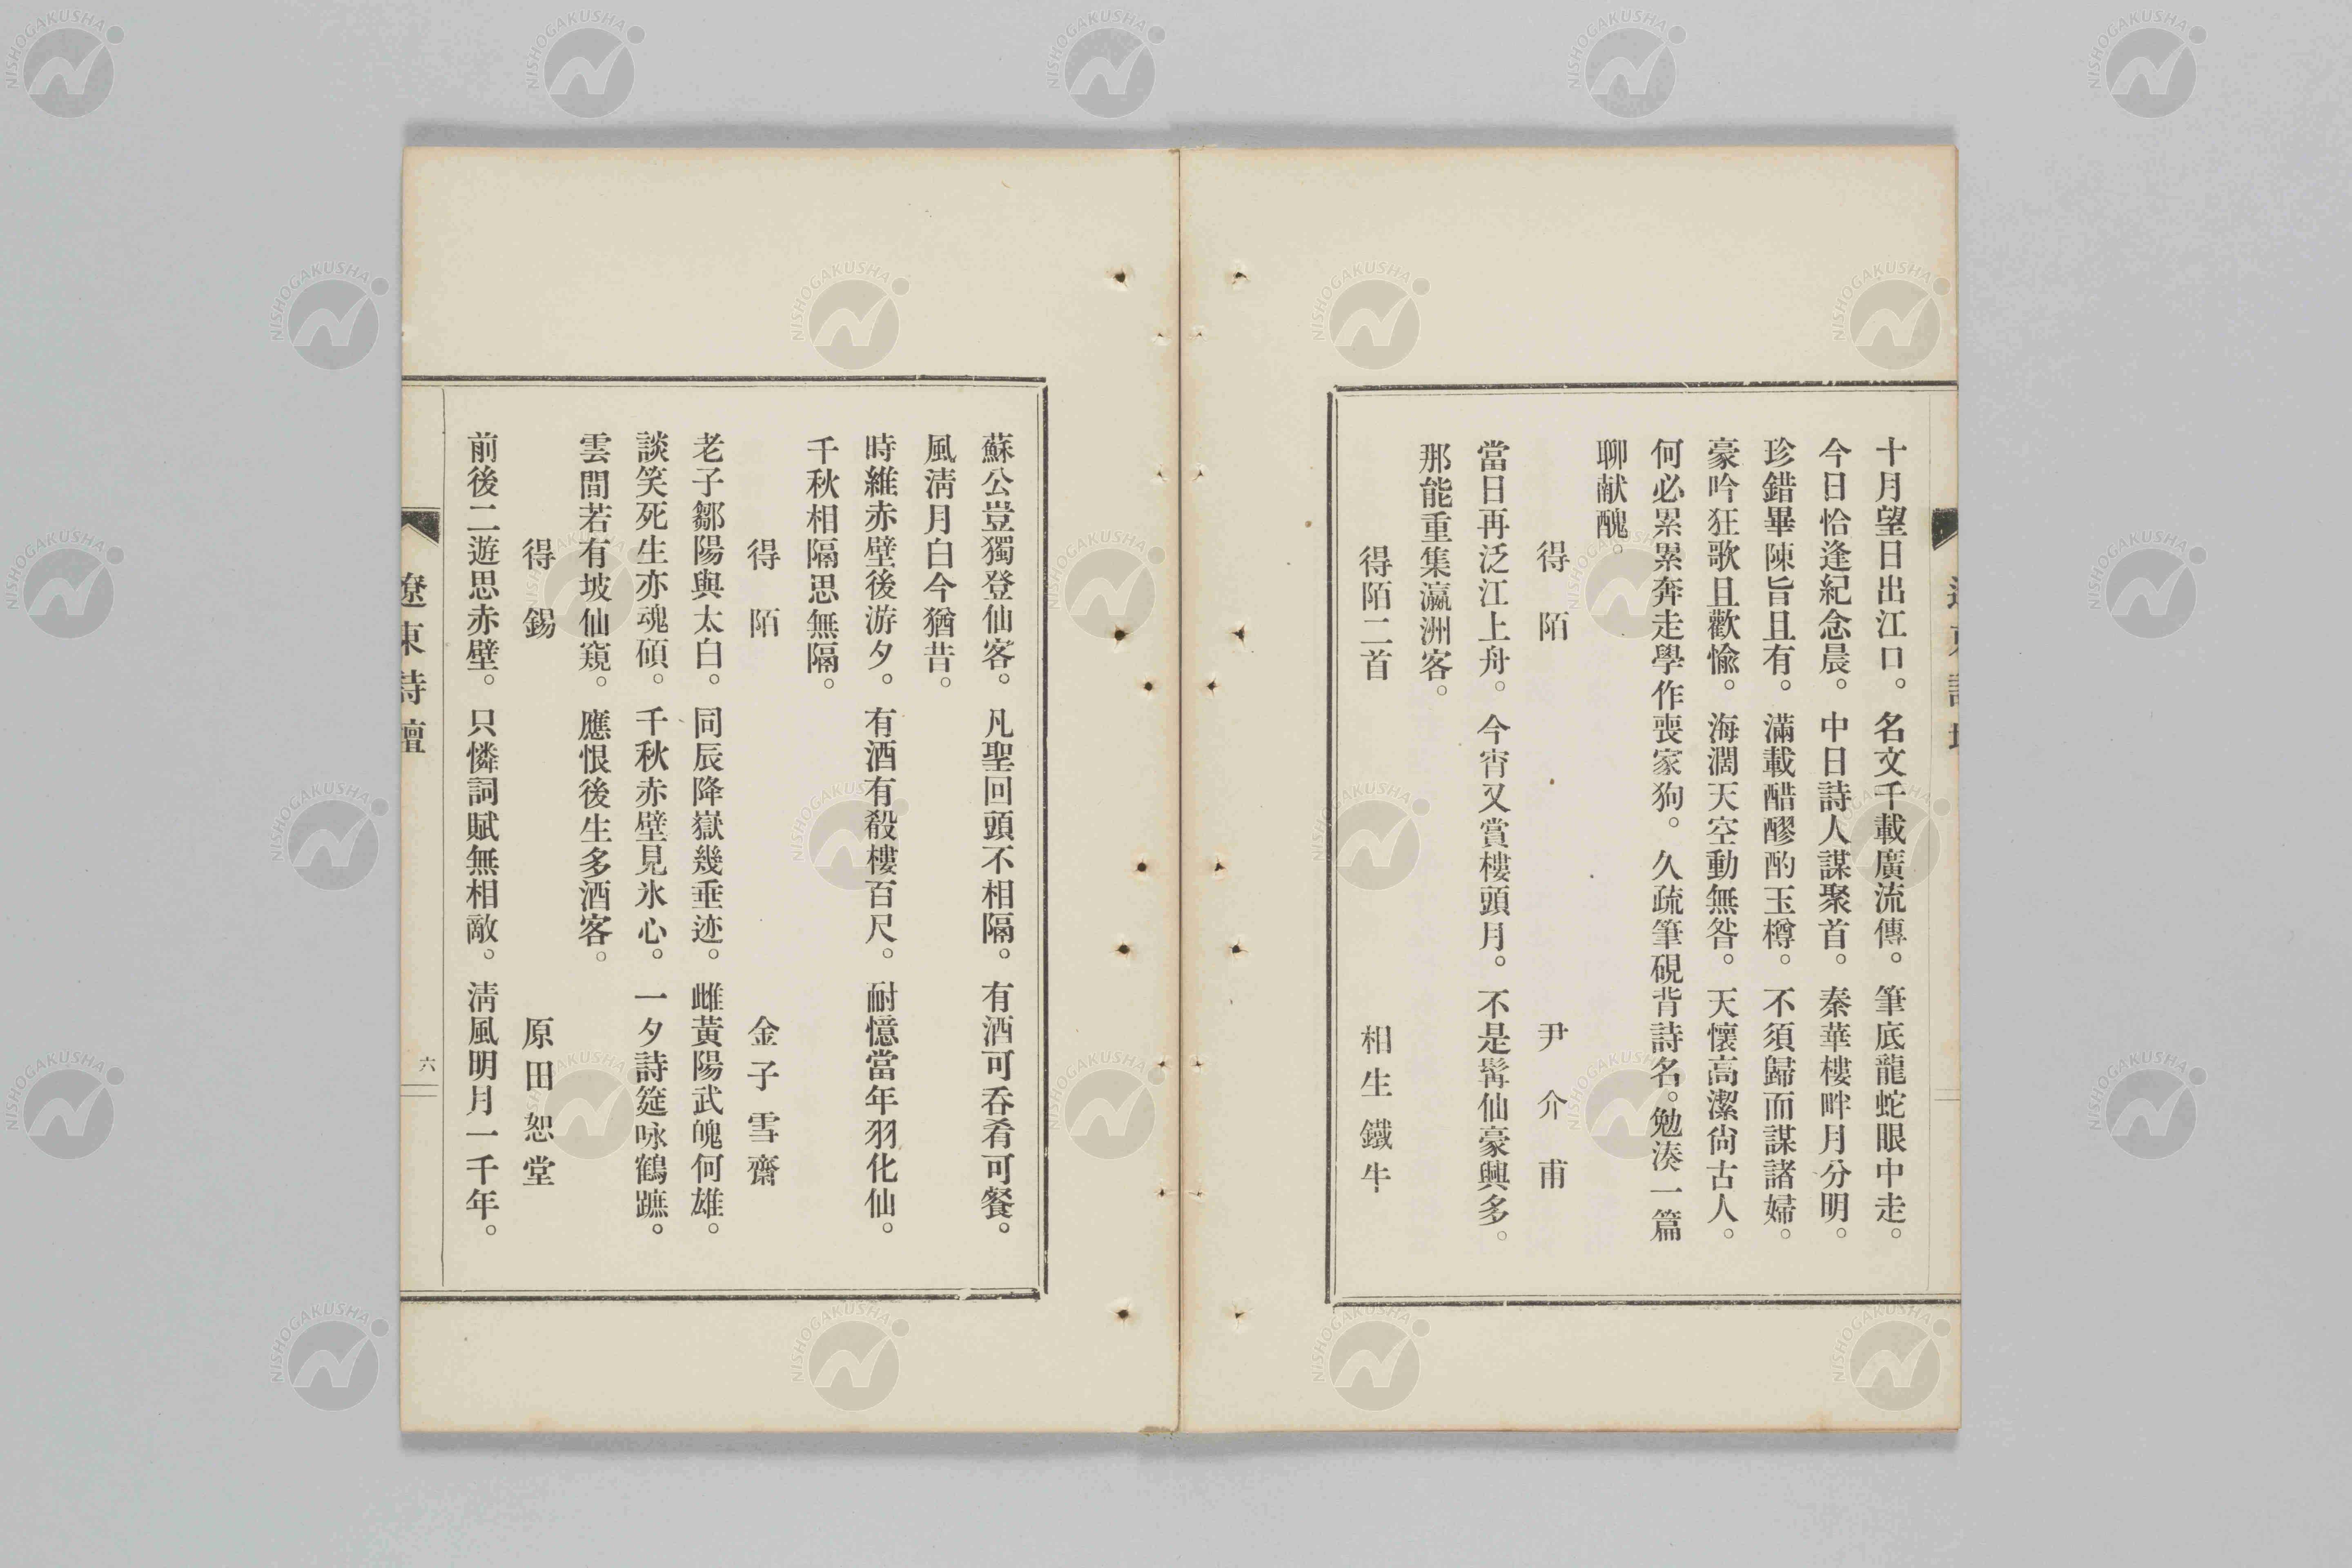 十月望日出江口。名文千載廣流傳。筆底龍蛇眼中走。
今日恰逢紀念晨。中日詩人謀聚首。秦華樓畔月分明。
珍錯畢陳旨且有。滿載醋醪酌玉樽。不須歸而謀諸婦。
豪吟狂歌且歡愉。海濶天空動無咎。天懷高潔尙古人。
何必累累奔走學作喪家狗。久疏筆硯背詩名。勉湊一篇
聊献醜。
得陌 尹介甫
當日再泛江上舟。今宵又賞樓頭月。不是髯仙豪興多。
那能重集瀛洲客。
得陌二首 相生鐵牛
蘇公豈獨登仙客。凡聖回頭不相隔。有酒可呑肴可餐。
風淸月白今猶昔。
時維赤壁後游夕。有酒有殽樓百尺。耐憶當年羽化仙。
千秋相隔思無隔。
得陌 金子雪齋
老子鄒陽與太白。同辰降嶽幾垂迹。雌黃陽武魄何雄。
談笑死生亦魂碩。千秋赤壁見氷心。一夕詩筵咏鶴蹠。
雲間若有坡仙窺。應恨後生多酒客。
得錫 原田恕堂
前後二遊思赤壁。只憐詞賦無相敵。淸風明月一千年。
遼東詩壇
六
NISHOGAKUSHA